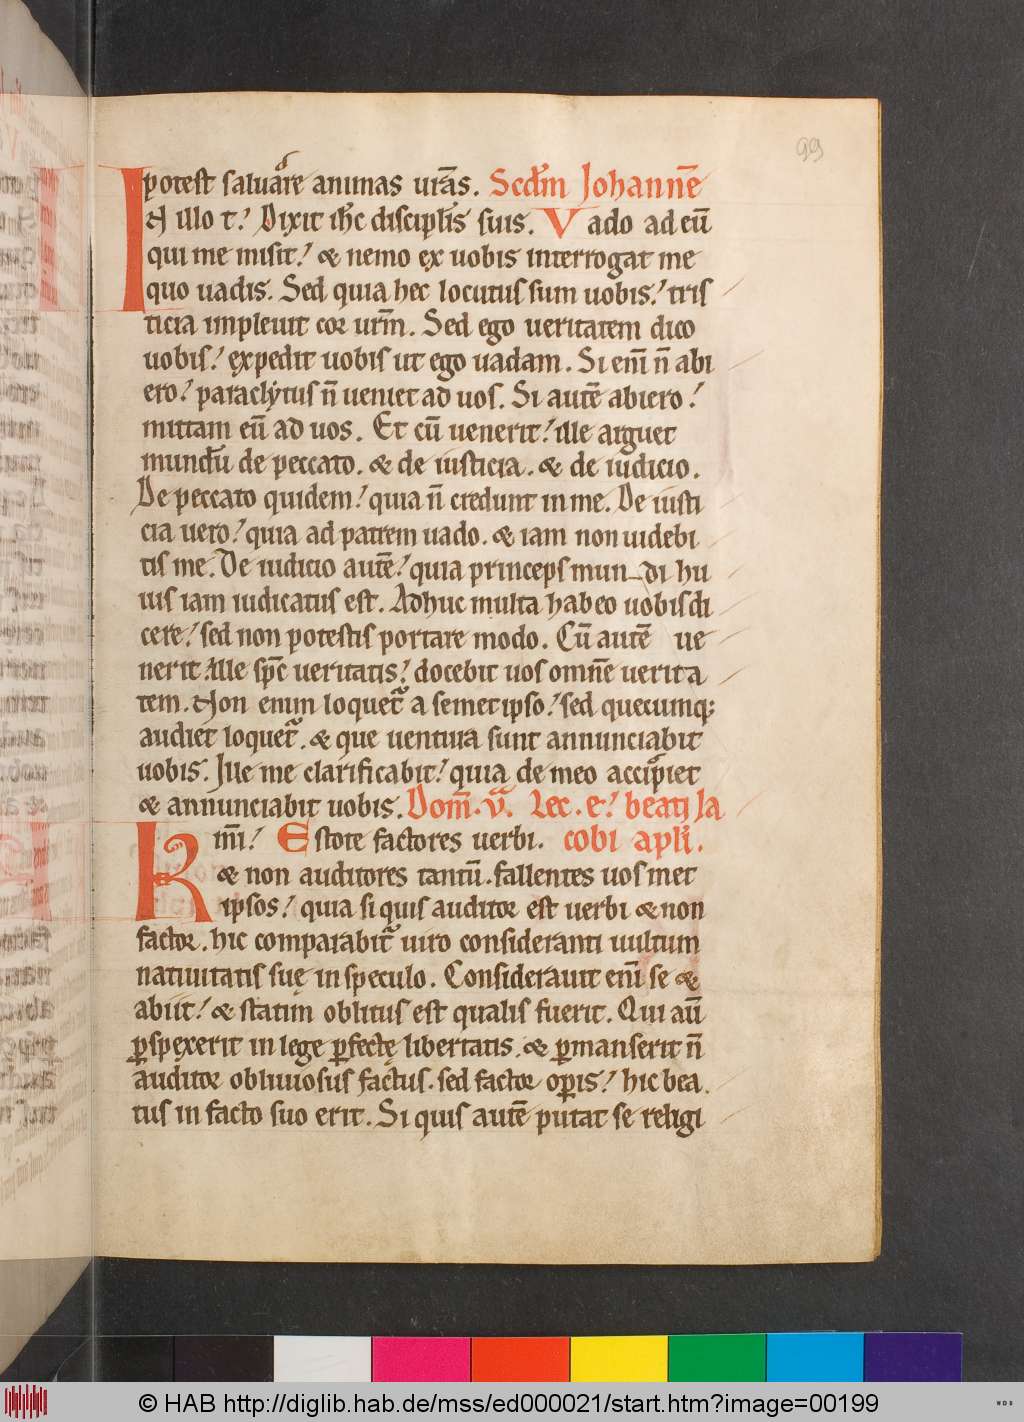 99
potest saluare animas urās. Scdm Johannē
IN illo t̄. Dixit ihc disciplis suis. Vado ad eū
qui me misit. & nemo ex uobis interrogat me
quo uadis. Sed quia hec locutus sum uobis. tris
ticia impleuit cor urm̄. Sed ego ueritatem dico
uobis. expedit uobis ut ego uadam. Si enī n̄ abi
ero. paraclytus n̄ ueniet ad uos. Si autē abiero.
mittam eū ad uos. Et cū uenerit. ille arguet
mundū de peccato. & de iusticia. & de iudicio.
De peccato quidem. quia n̄ credunt in me. De iusti
cia uero. quia ad patrem uado. & iam non uidebi
tis me. De iudicio autē. quia princeps mundi hu
ius iam iudicatus est. Adhuc multa habeo uobis di
cere. sed non potestis portare modo. Cū autē ue
nerit ille spc̄ ueritatis. docebit uos omnē uerita
tem. Non enim loquet̄ a semet ipso. sed quecumq;
audiet loquet̄. & que uentura sunt annunciabit
uobis. Ille me clarificabit. quia de meo accipiet
& annunciabit uobis. Dom̄. v. Lec. e. beati Ja
Kmī. Estote factores uerbi. cobi apli.
& non auditores tantū. fallentes uos met
ipsos. quia si quis auditor est uerbi & non
factor. hic comparabit̄ uiro consideranti uultum
natiuitatis suę in speculo. Considerauit enī se &
abiit. & statim oblitus est qualis fuerit. Qui aū
ꝑspexerit in lege ꝑfectę libertatis. & ꝑmanserit n̄
auditor obliuiosus factus. sed factor oꝑis. hic bea
tus in facto suo erit. Si quis autē putat se religi
© HAB http://diglib.hab.de/mss/ed000021/start.htm?image=00199